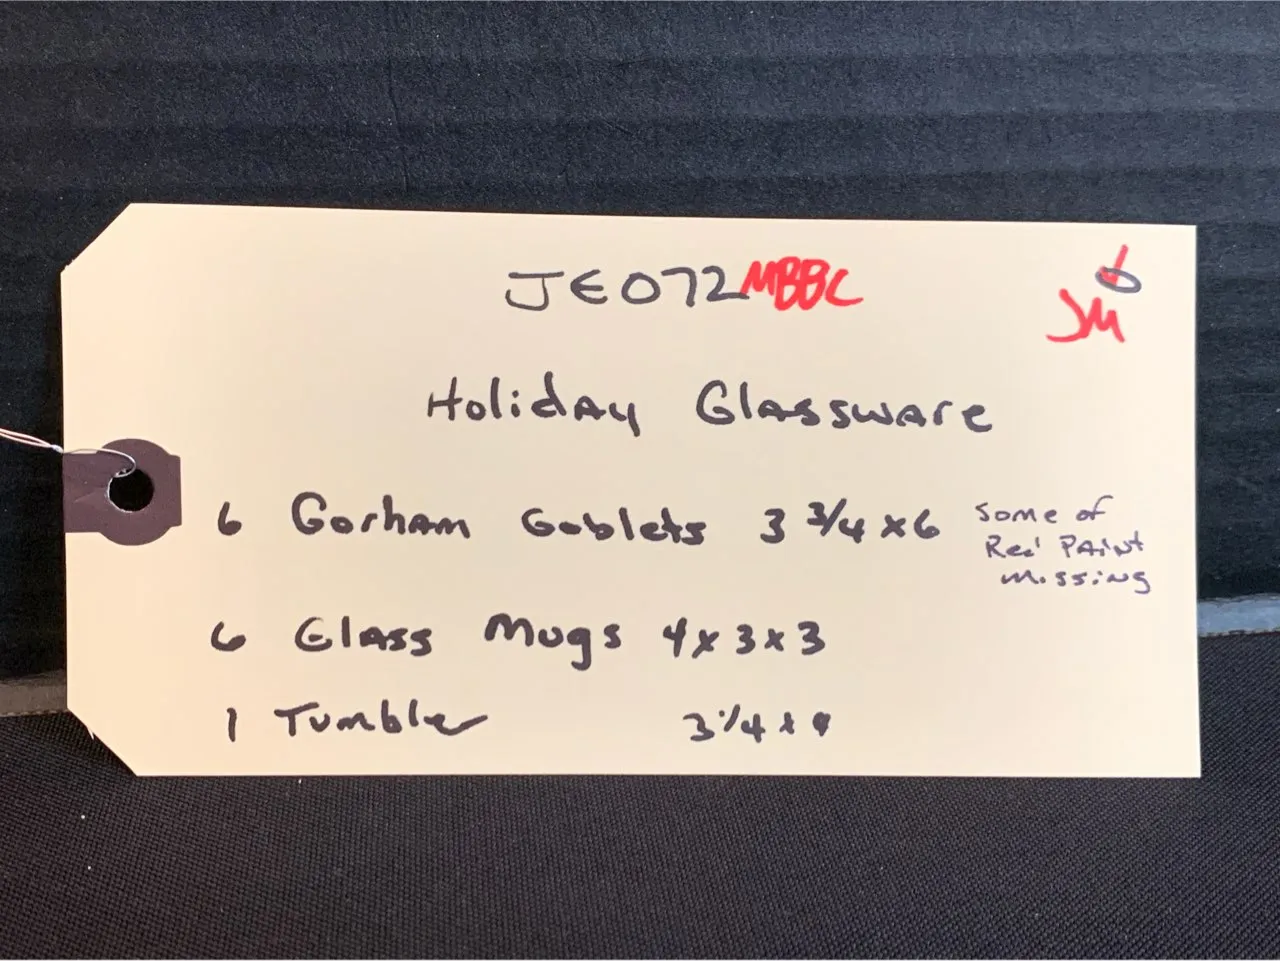 JE072MBBC
JM
Holiday Glassware
6 Gorham Goblets 3 3/4 x 6
Some of
Red Paint
Missing
6 Glass Mugs 4 x 3 x 3
1 Tumbler 3 1/4 x